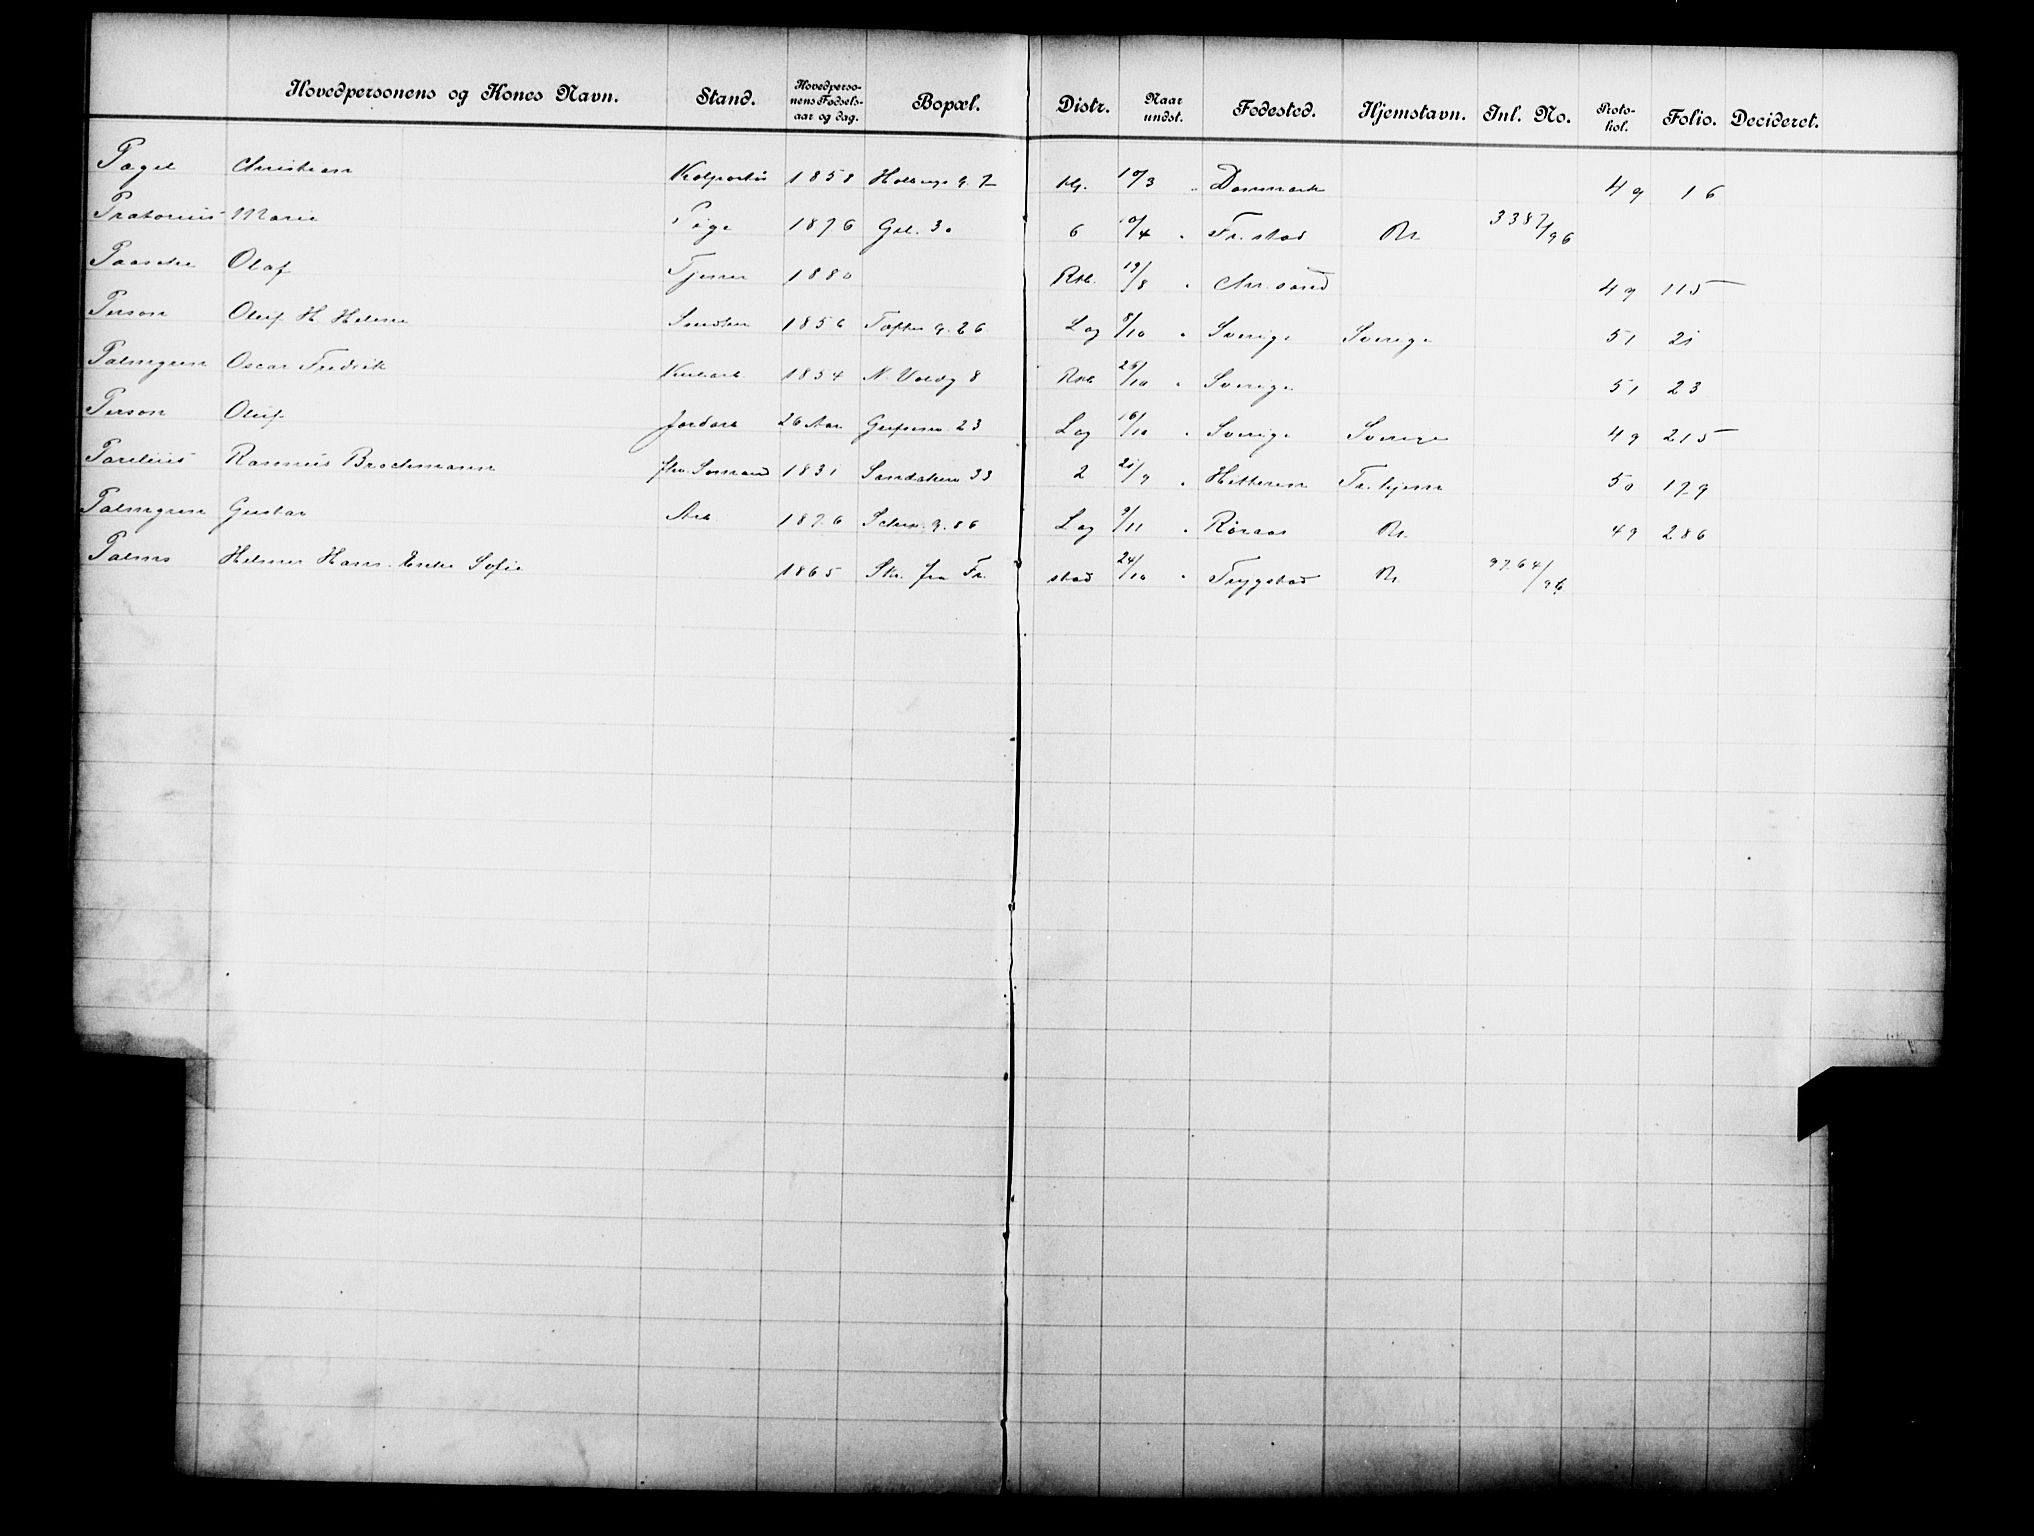 Hovedpersonens og Kones Navn. Stand. Hovedperso-nens Fødsels-aar og dag. Bopæl. Distr. Naar undst. Fødested. Hjemstavn. Inl. No. Proto-kol. Folio. Decideret.
Pagel Christian Kolportør 1858 Holbergs g. 2 10/3 " Danmark 49 16
Pratorius Marie Pige 1876 Grl. 30 6 10/4 " Fr.stad 3387/96
Paaske Olaf Tjener 1880 Rst. 19/8 " Chr.sand 49 115
Person Oluf H Helene Snedker 1856 Toftes g. 26 Lag 8/10 " Sverige Sverige 51 21
Palmgren Oscar Fredrik 1854 N. Voldg 8 Rst. 26/10 " Sverige 51 23
Person Oluf Jordarb 26 Aar 23 Lag 16/10 " Sverige Sverige 49 215
Parelius Rasmus Brochmann fhv. Sømand 1831 Sandakerv 33 2 21/9 " Hitteren Tr.hjem 50 179
Palmgren Gustav Arb. 1876 Schw. g. 86 Lag 9/11 " Røraas 49 286
Palms Helmer Hans. Enke Sofie 1865 Skr. fra Fr. stad 24/10 " Trygstad 9764/96